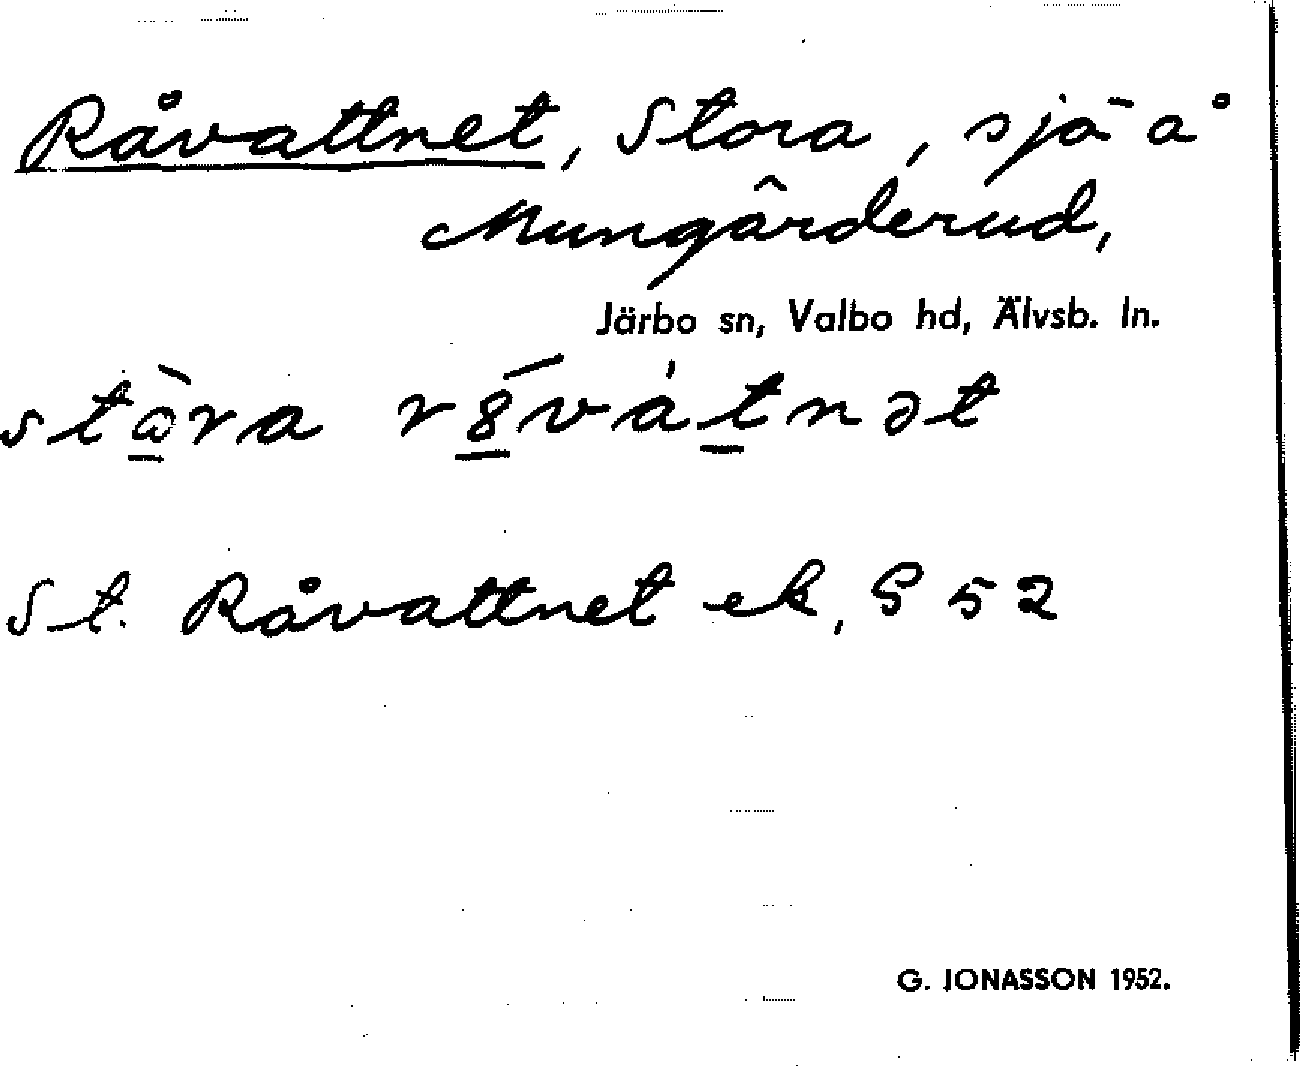 Råvattnet, Stora, sjö å
Mungârderud,
Järbo sn, Valbo hd, Älvsb. ln.
St. Råvattnet ek, S 52
G. JONASSON 1952.